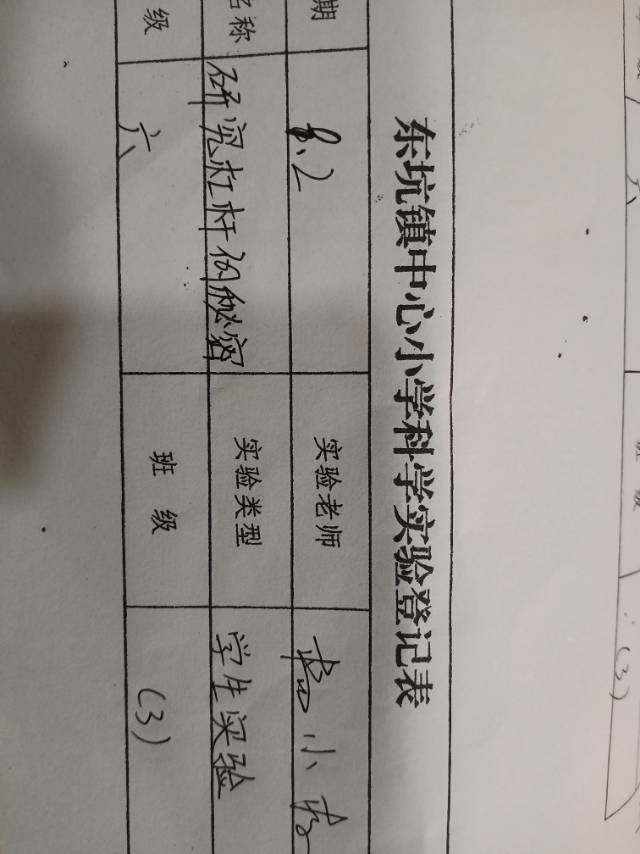 东坑镇中心小学科学实验登记表
期 8.2 实验老师 小
名称 研究杠杆的秘密 实验类型 学生实验
级 六 班级 (3)
六 班级 (3)